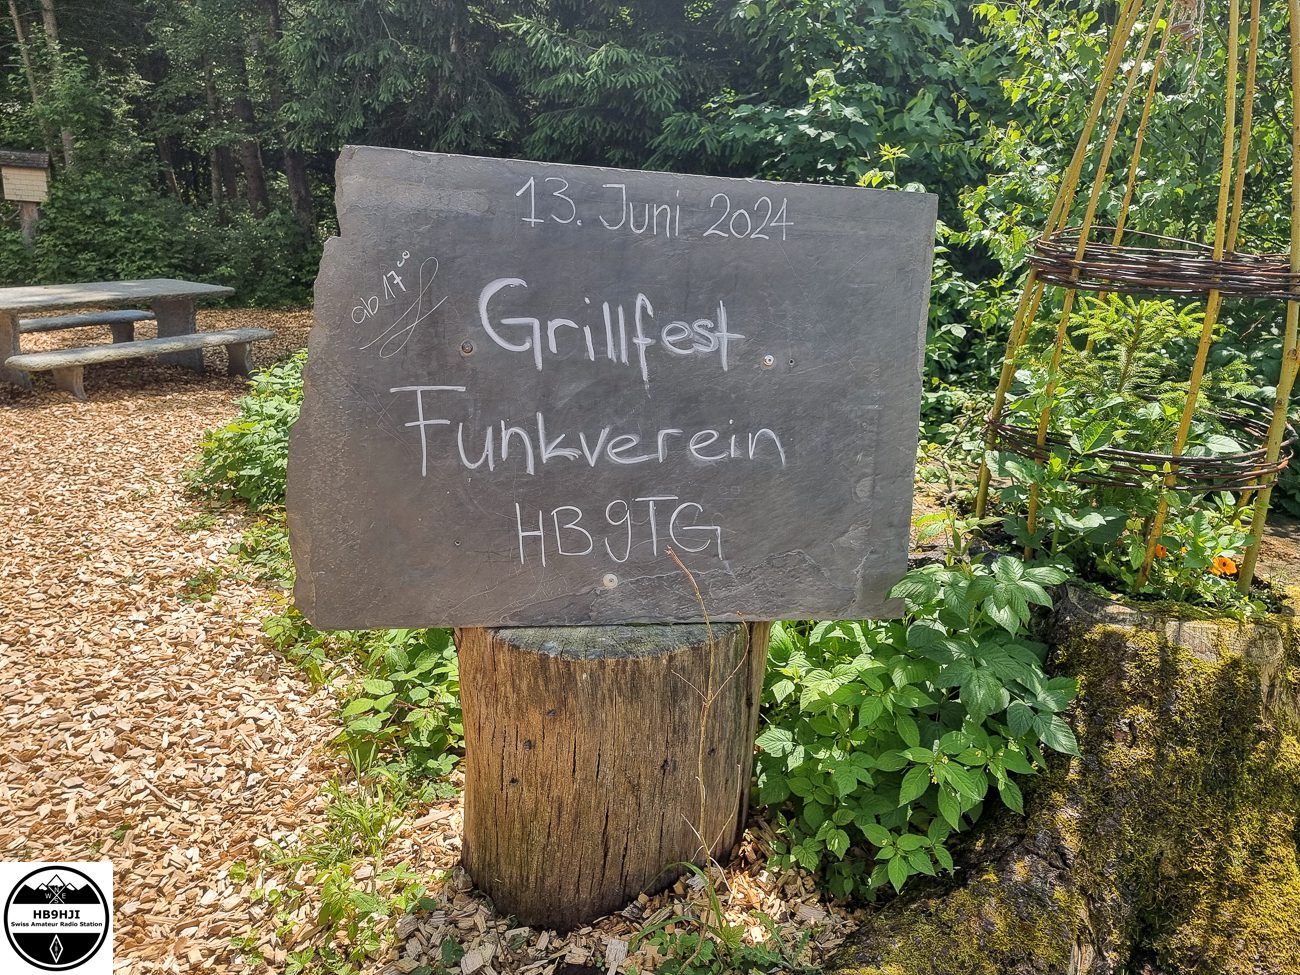 13. Juni 2024
ab 17⁰⁰
Grillfest
Funkverein
HB9TG
N
W E
HB9HJI
Swiss Amateur Radio Station